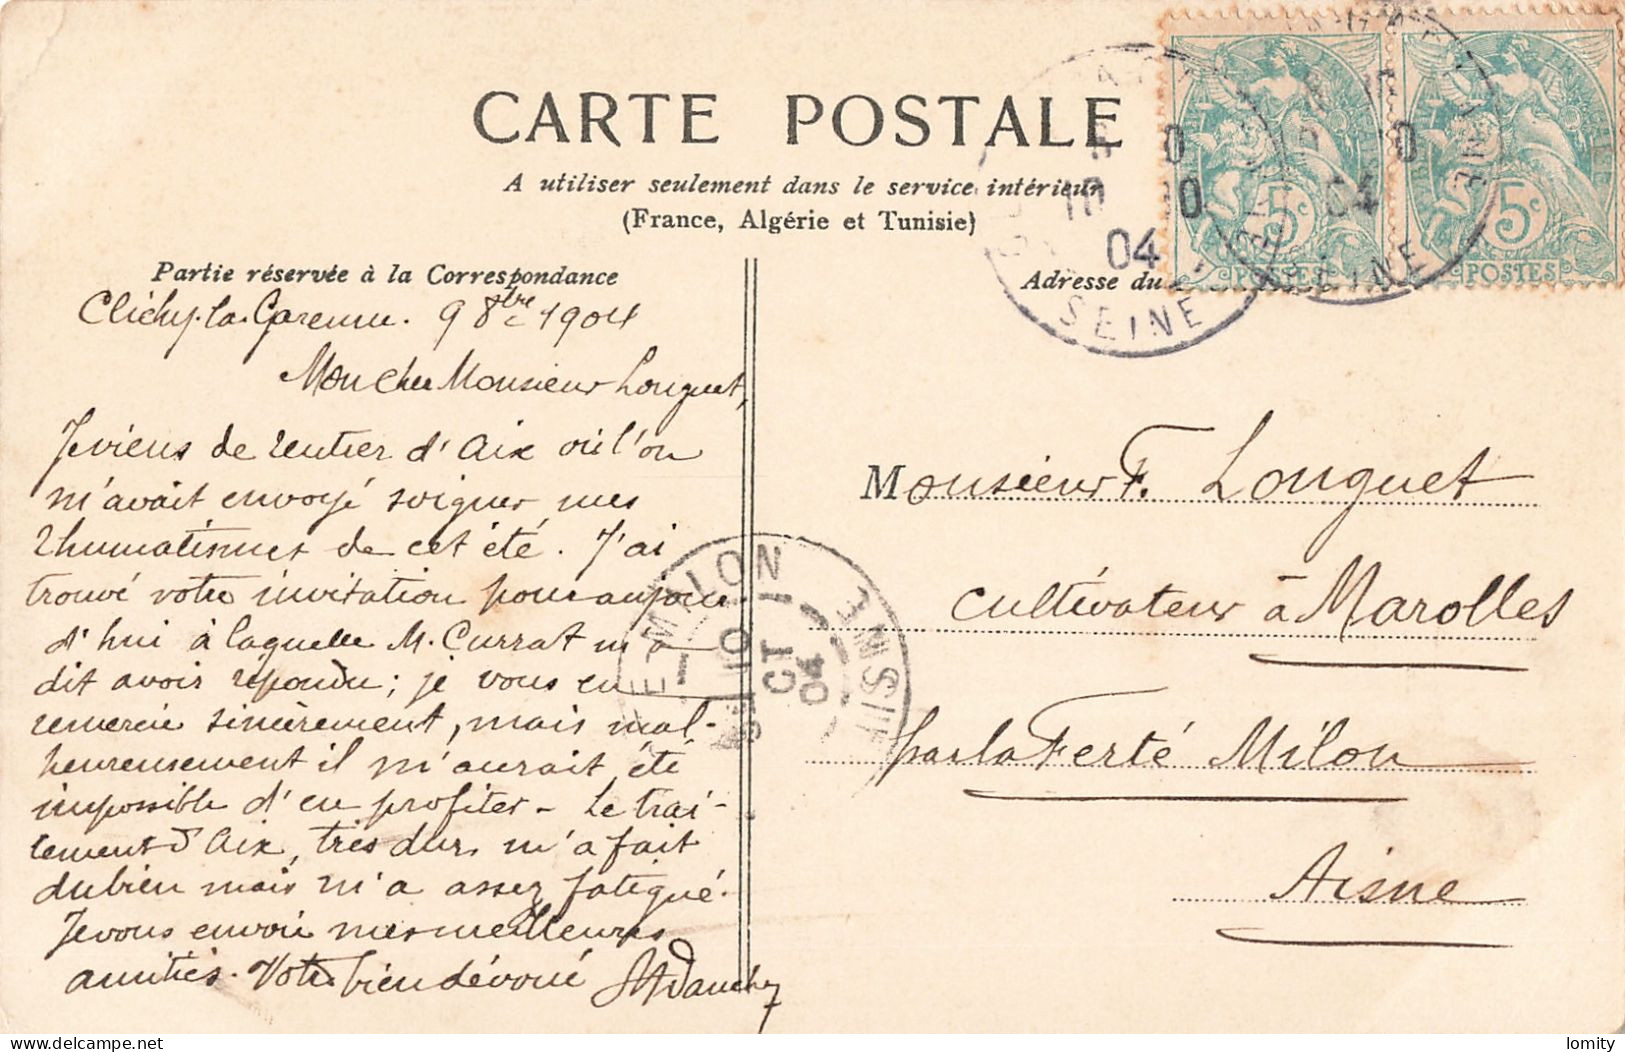 CARTE POSTALE
A utiliser seulement dans le service intérieur
(France, Algérie et Tunisie)
Partie réservée à la Correspondance
Adresse du
Clichy-la-Garenne. 9 8bre 1904
Mon cher Monsieur Longuet,
Je viens de rentrer d'Aix où l'on
m'avait envoyé soigner mes
rhumatismes de cet été. J'ai
trouvé votre invitation pour aujour
d'hui à laquelle M. Currat m'a
dit avoir répondu; je vous en
remercie sincèrement, mais mal-
heureusement il m'aurait été
impossible d'en profiter - Le trai-
tement d'Aix, très dur, m'a fait
du bien mais m'a assez fatigué.
Je vous envoie mes meilleures
amitiés. Votre bien dévoué
Monsieur F. Longuet
cultivateur à Marolles
par la Ferté Milon
Aisne
10 04
SEINE
04
SEINE
5c
POSTES
5c
POSTES
MILON
10
OCT
04
AISNE
delcampe.net
lomity